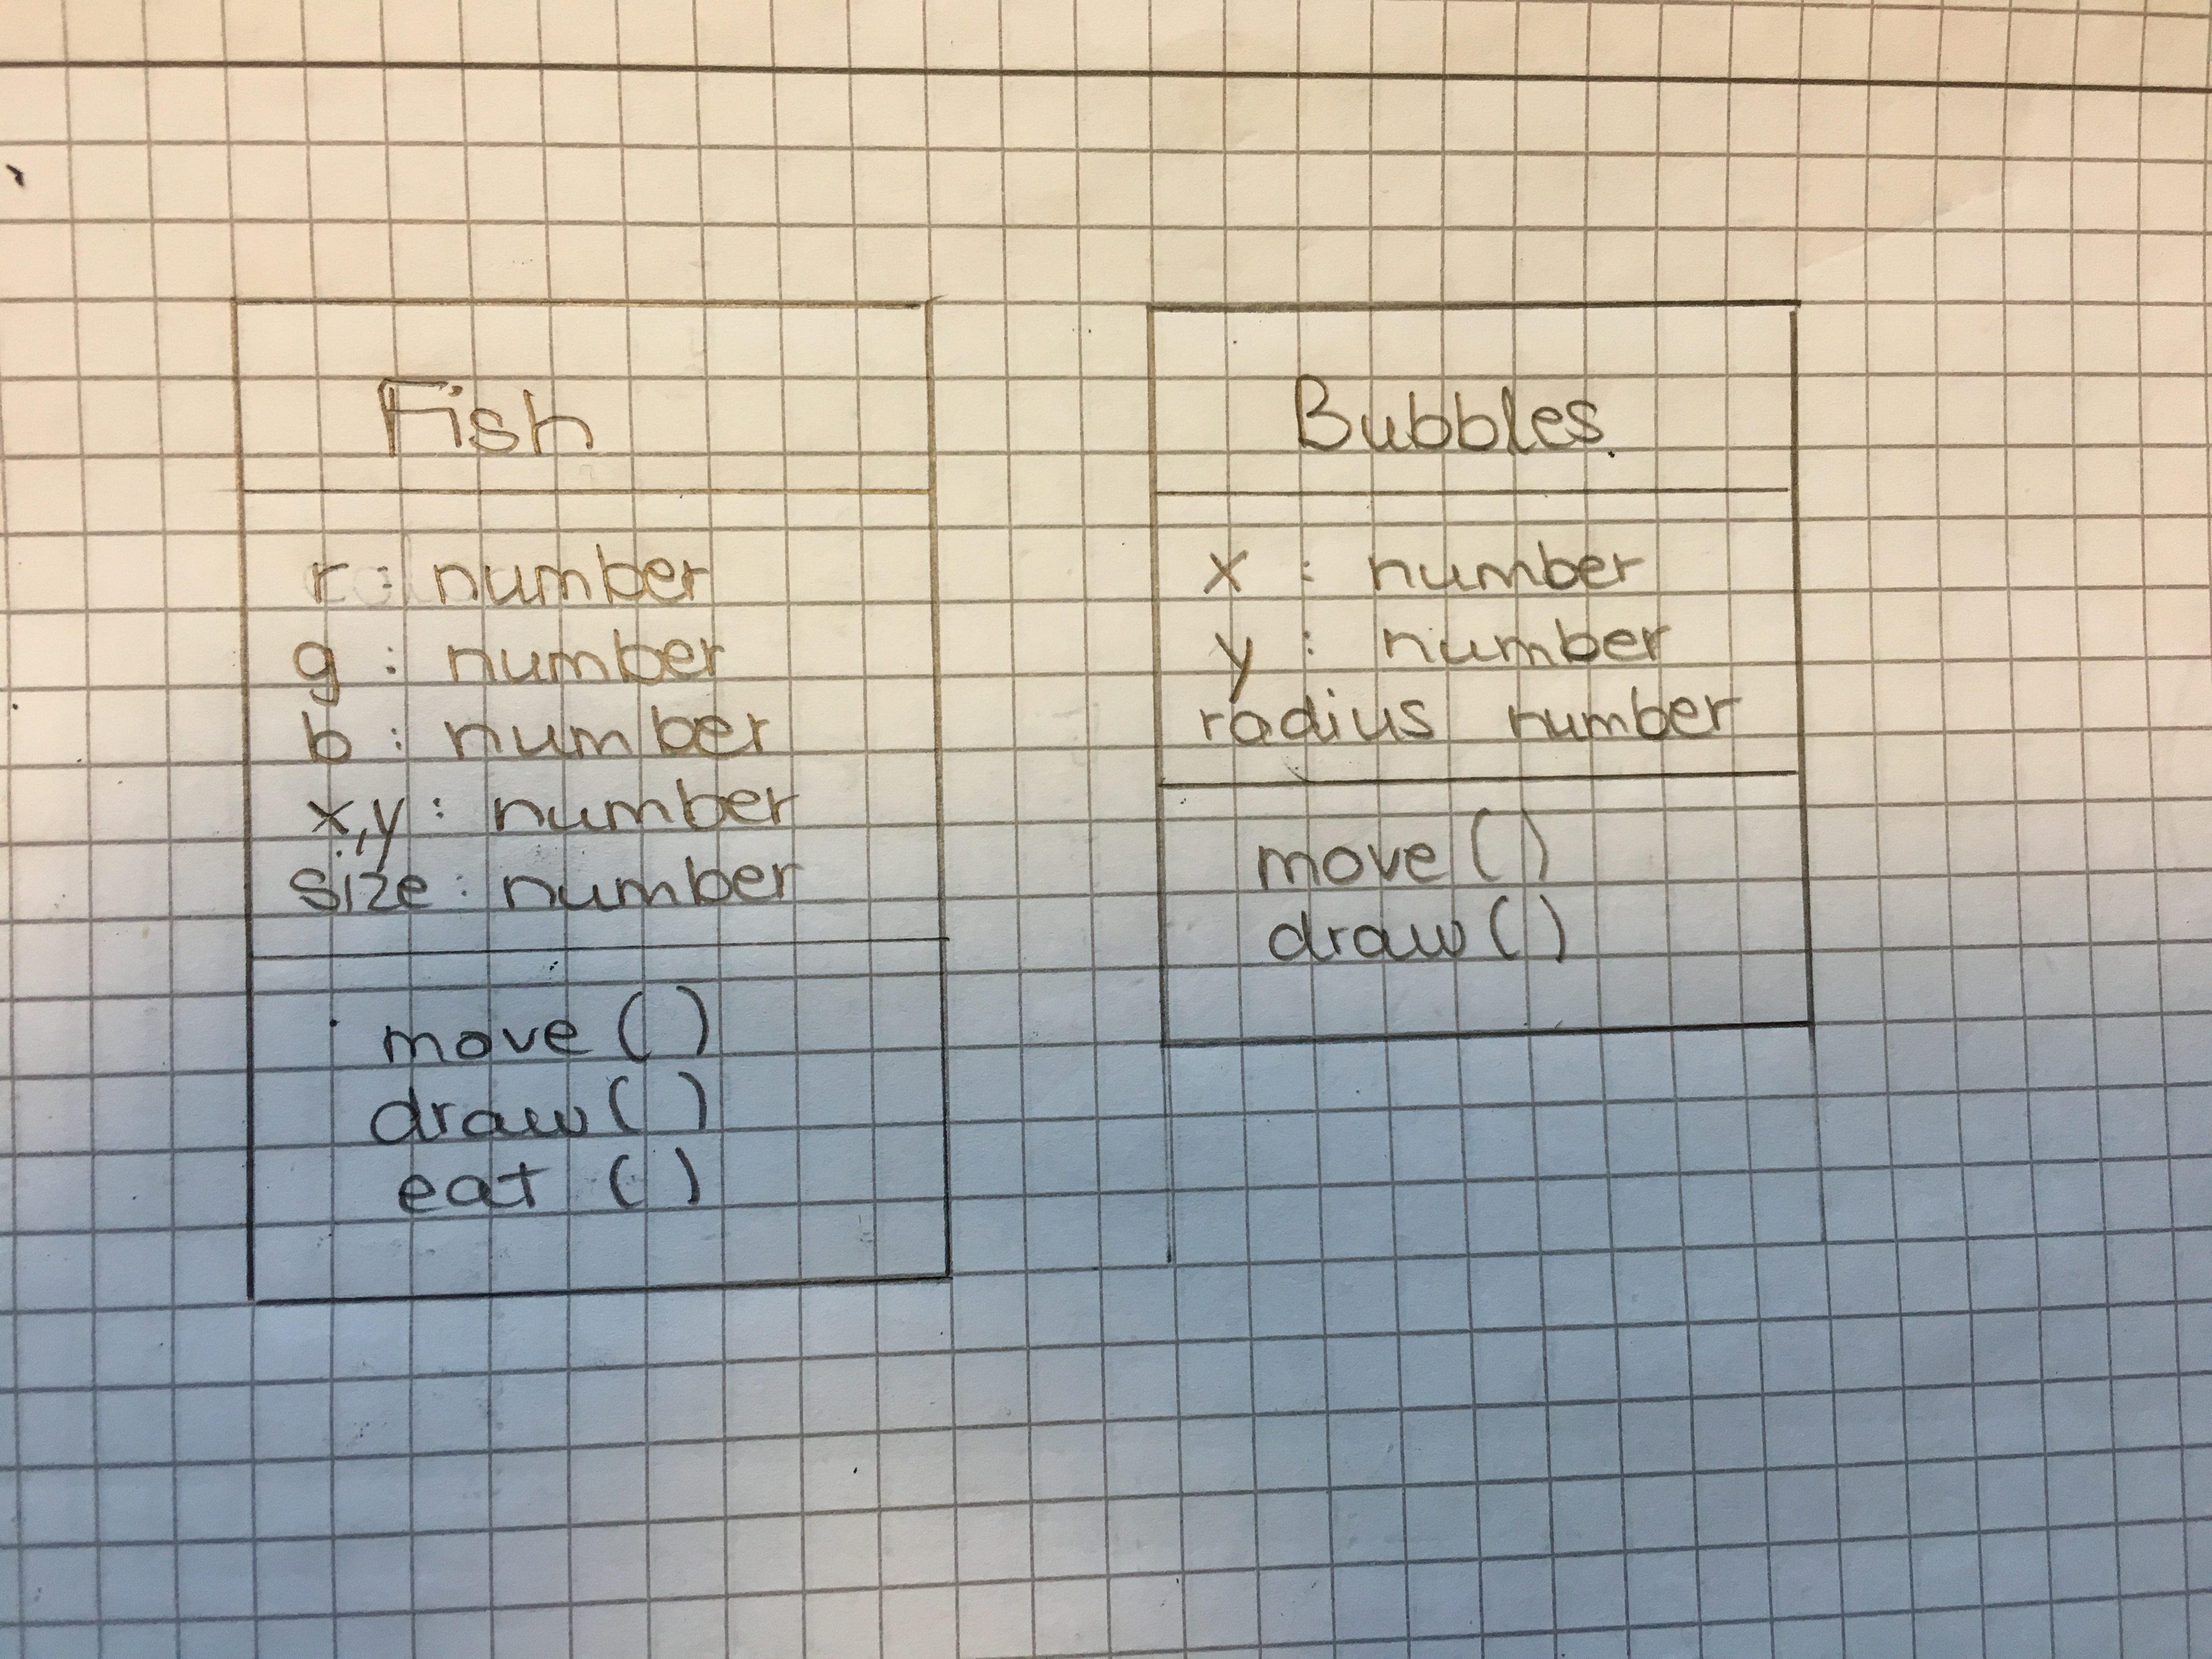 Fish
r : number
g : number
b : number
x,y : number
size : number
move ( )
draw ( )
eat ( )
Bubbles
x : number
y : number
radius number
move ( )
draw ( )